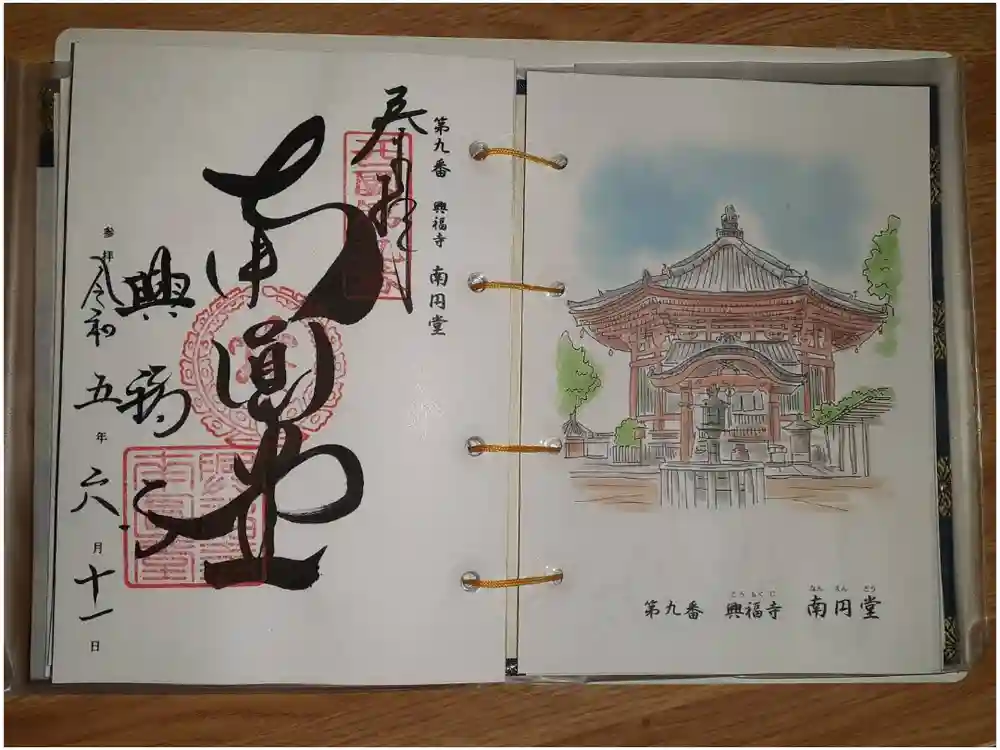 第九番 興福寺 南円堂
奉拝
南圓堂
興福寺
参拝 令和五年六月十一日
第九番 興福寺 南円堂
こうふくじ なんえんどう